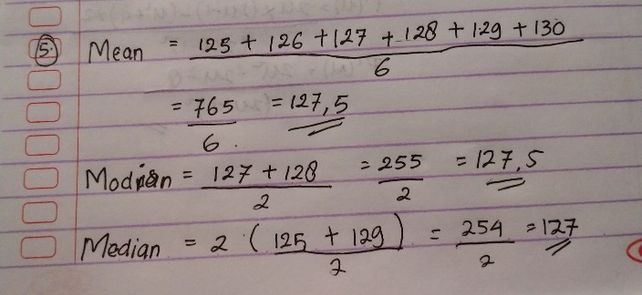 5. Mean = (125 + 126 + 127 + 128 + 129 + 130) / 6
= 765 / 6 = 127,5
= (127 + 128) / 2 = 255 / 2 = 127,5
Median = 2 · (125 + 129) / 2 = 254 / 2 = 127